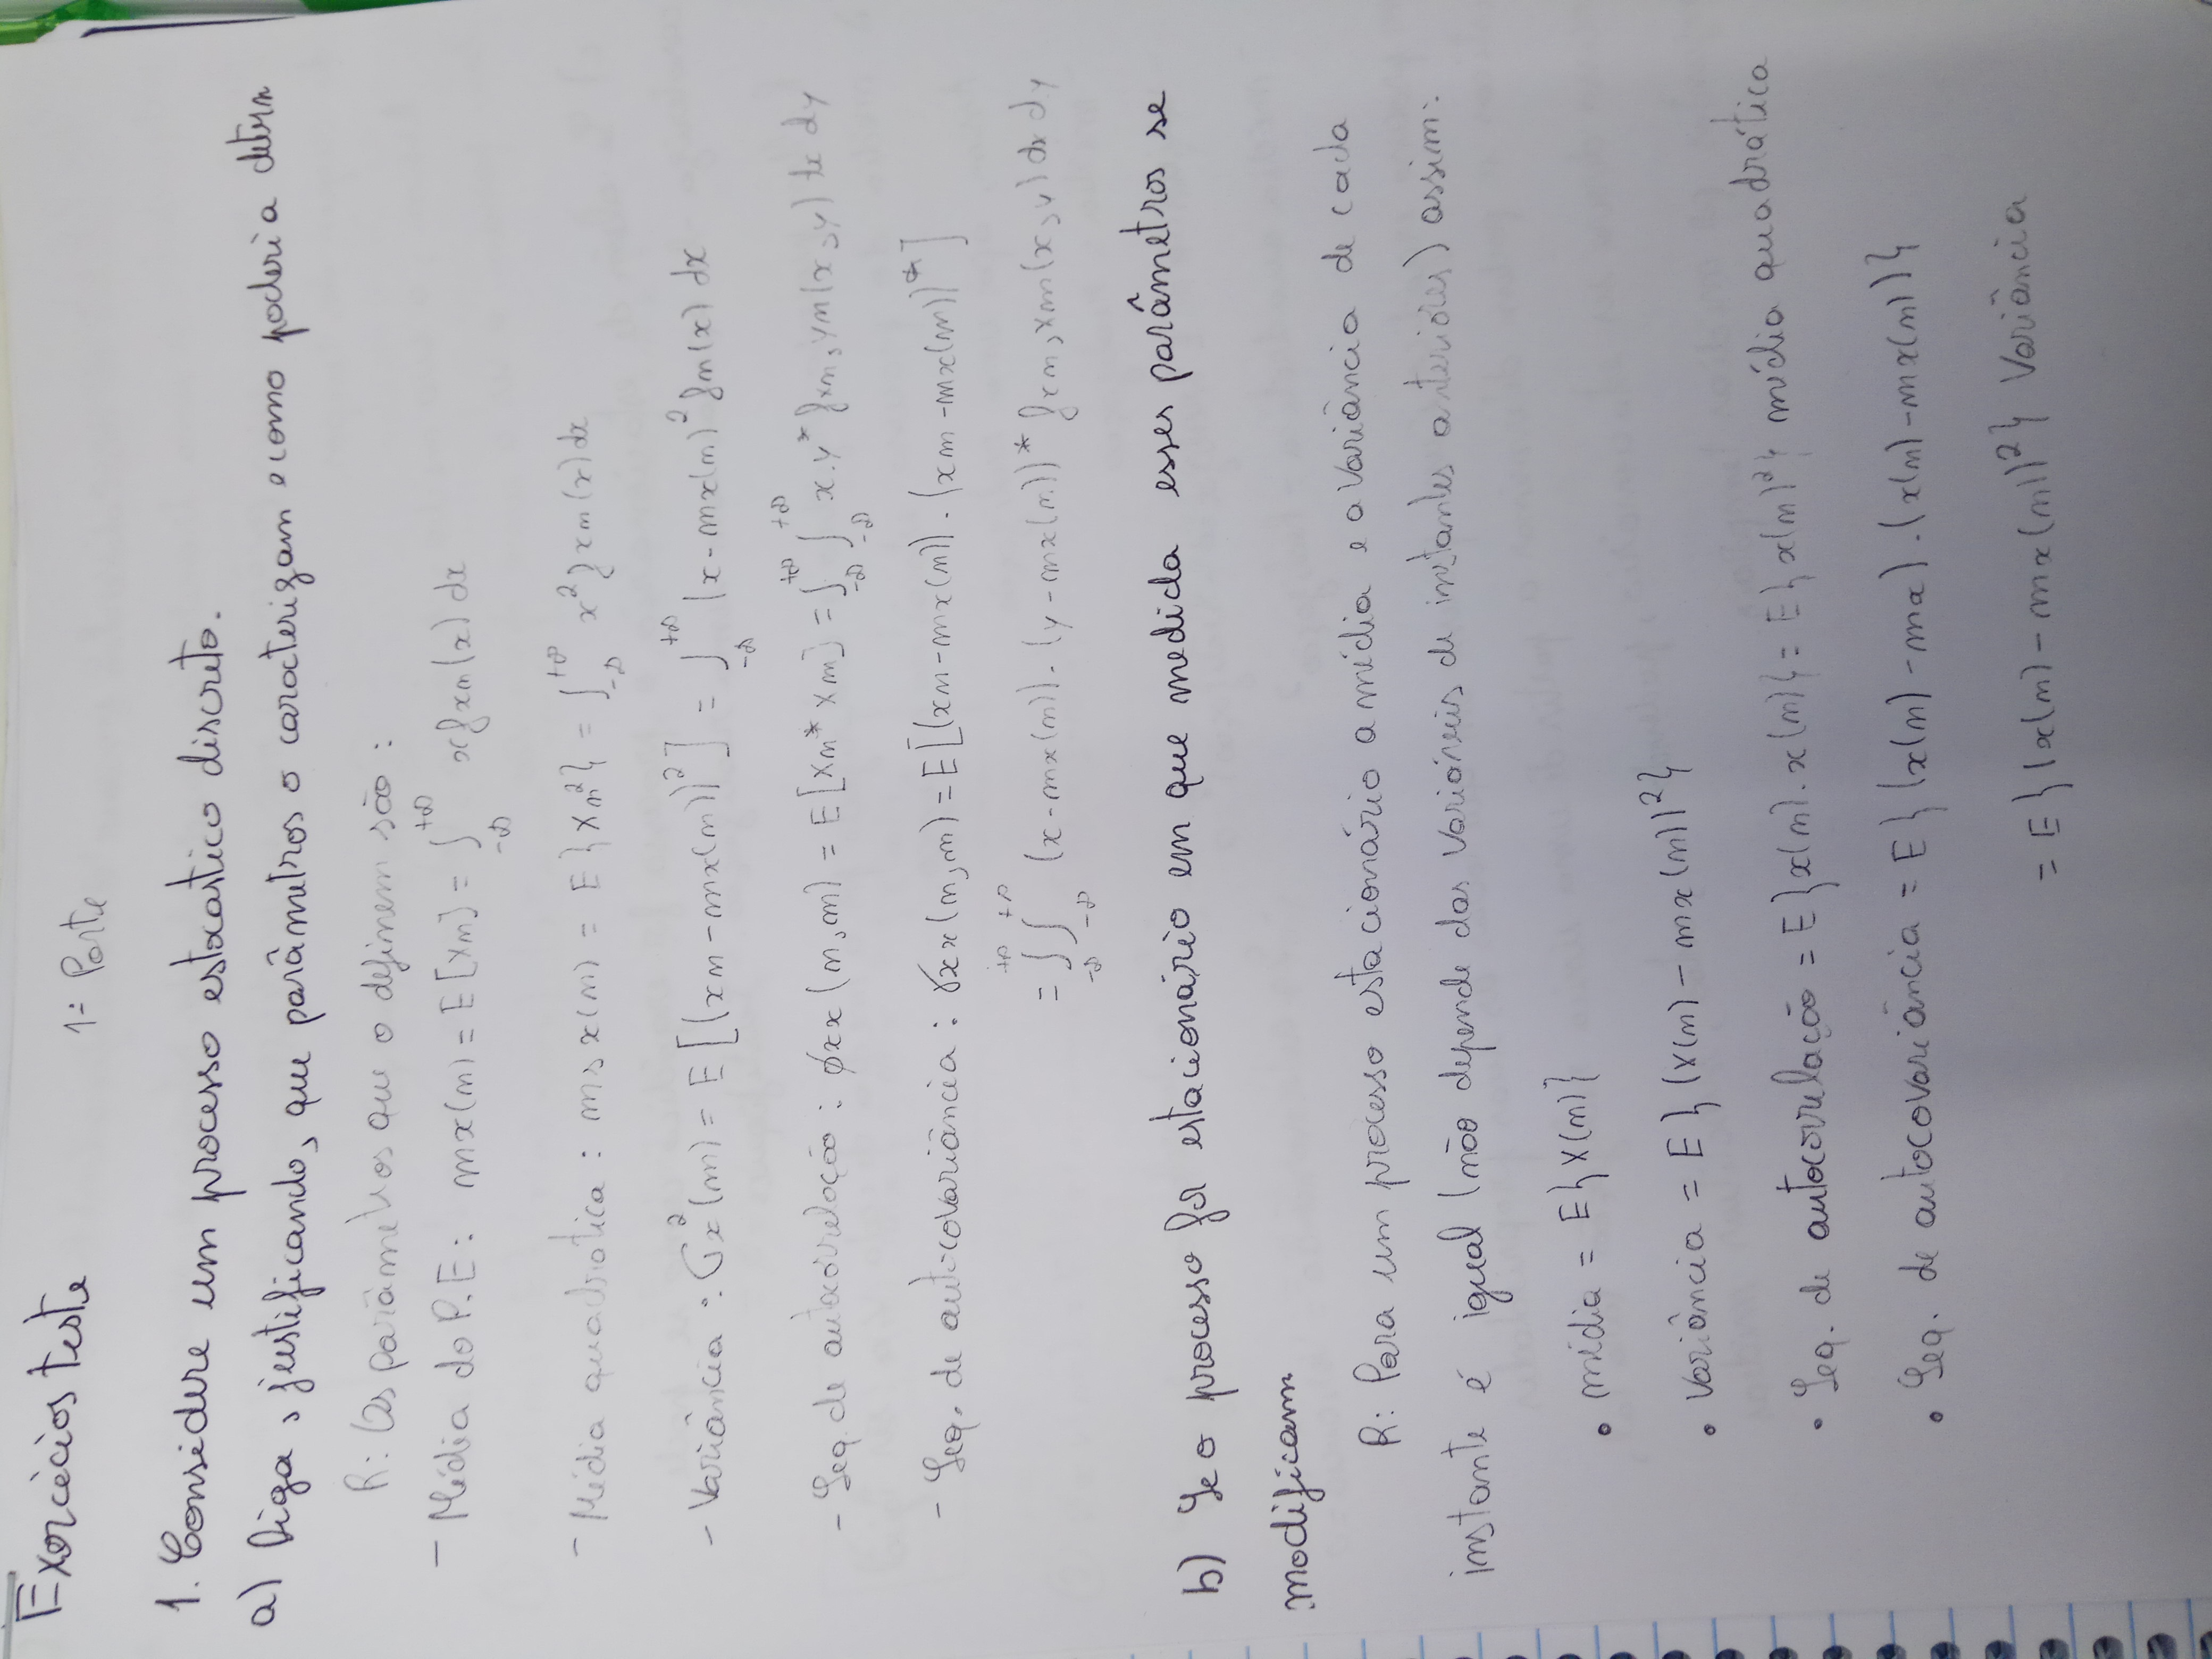 Exercécios teste
1ª Parte
1. Considere um processo estocastico discreto.
a) Diga, justificando, que parâmetros o caracterizam e como poderia determ
R: Os parâmetros que o definem são:
- Média do P.E: mx(n) = E[Xn] = ∫_{-∞}^{+∞} x fxn(x) dx
- Média quadrática: msx(n) = E{Xn²} = ∫_{-∞}^{+∞} x² fxn(x) dx
- Variância: σx²(n) = E[(xn - mx(n))²] = ∫_{-∞}^{+∞} (x - mx(n)² fn(x) dx
- Seq. de autocorrelação: φxx(n,m) = E[Xn* Xm] = ∫_{-∞}^{+∞} ∫_{-∞}^{+∞} x.y* fxn,ym(x,y) dx dy
- Seq. de autocovariância: γxx(n,m) = E[(xn - mx(n)) . (xm - mx(m))*]
= ∫_{-∞}^{+∞} ∫_{-∞}^{+∞} (x - mx(n)) . (y - mx(n))* fxn,xm(x,y) dx dy
b) Se o processo for estacionário em que medida esses parâmetros se
modificam
R: Para um processo estacionário a média e a variância de cada
instante é igual (não depende das variáveis de instantes anteriores) assim:
• média = E{X(n)}
• variância = E{(X(n) - mx(n))²}
• Seq. de autocorrelação = E{x(n).x(n)} = E{x(n)²} média quadrática
• Seq. de autocovariância = E{(x(n) - mx) . (x(n) - mx(n))}
= E{(x(n) - mx(n))²} Variância